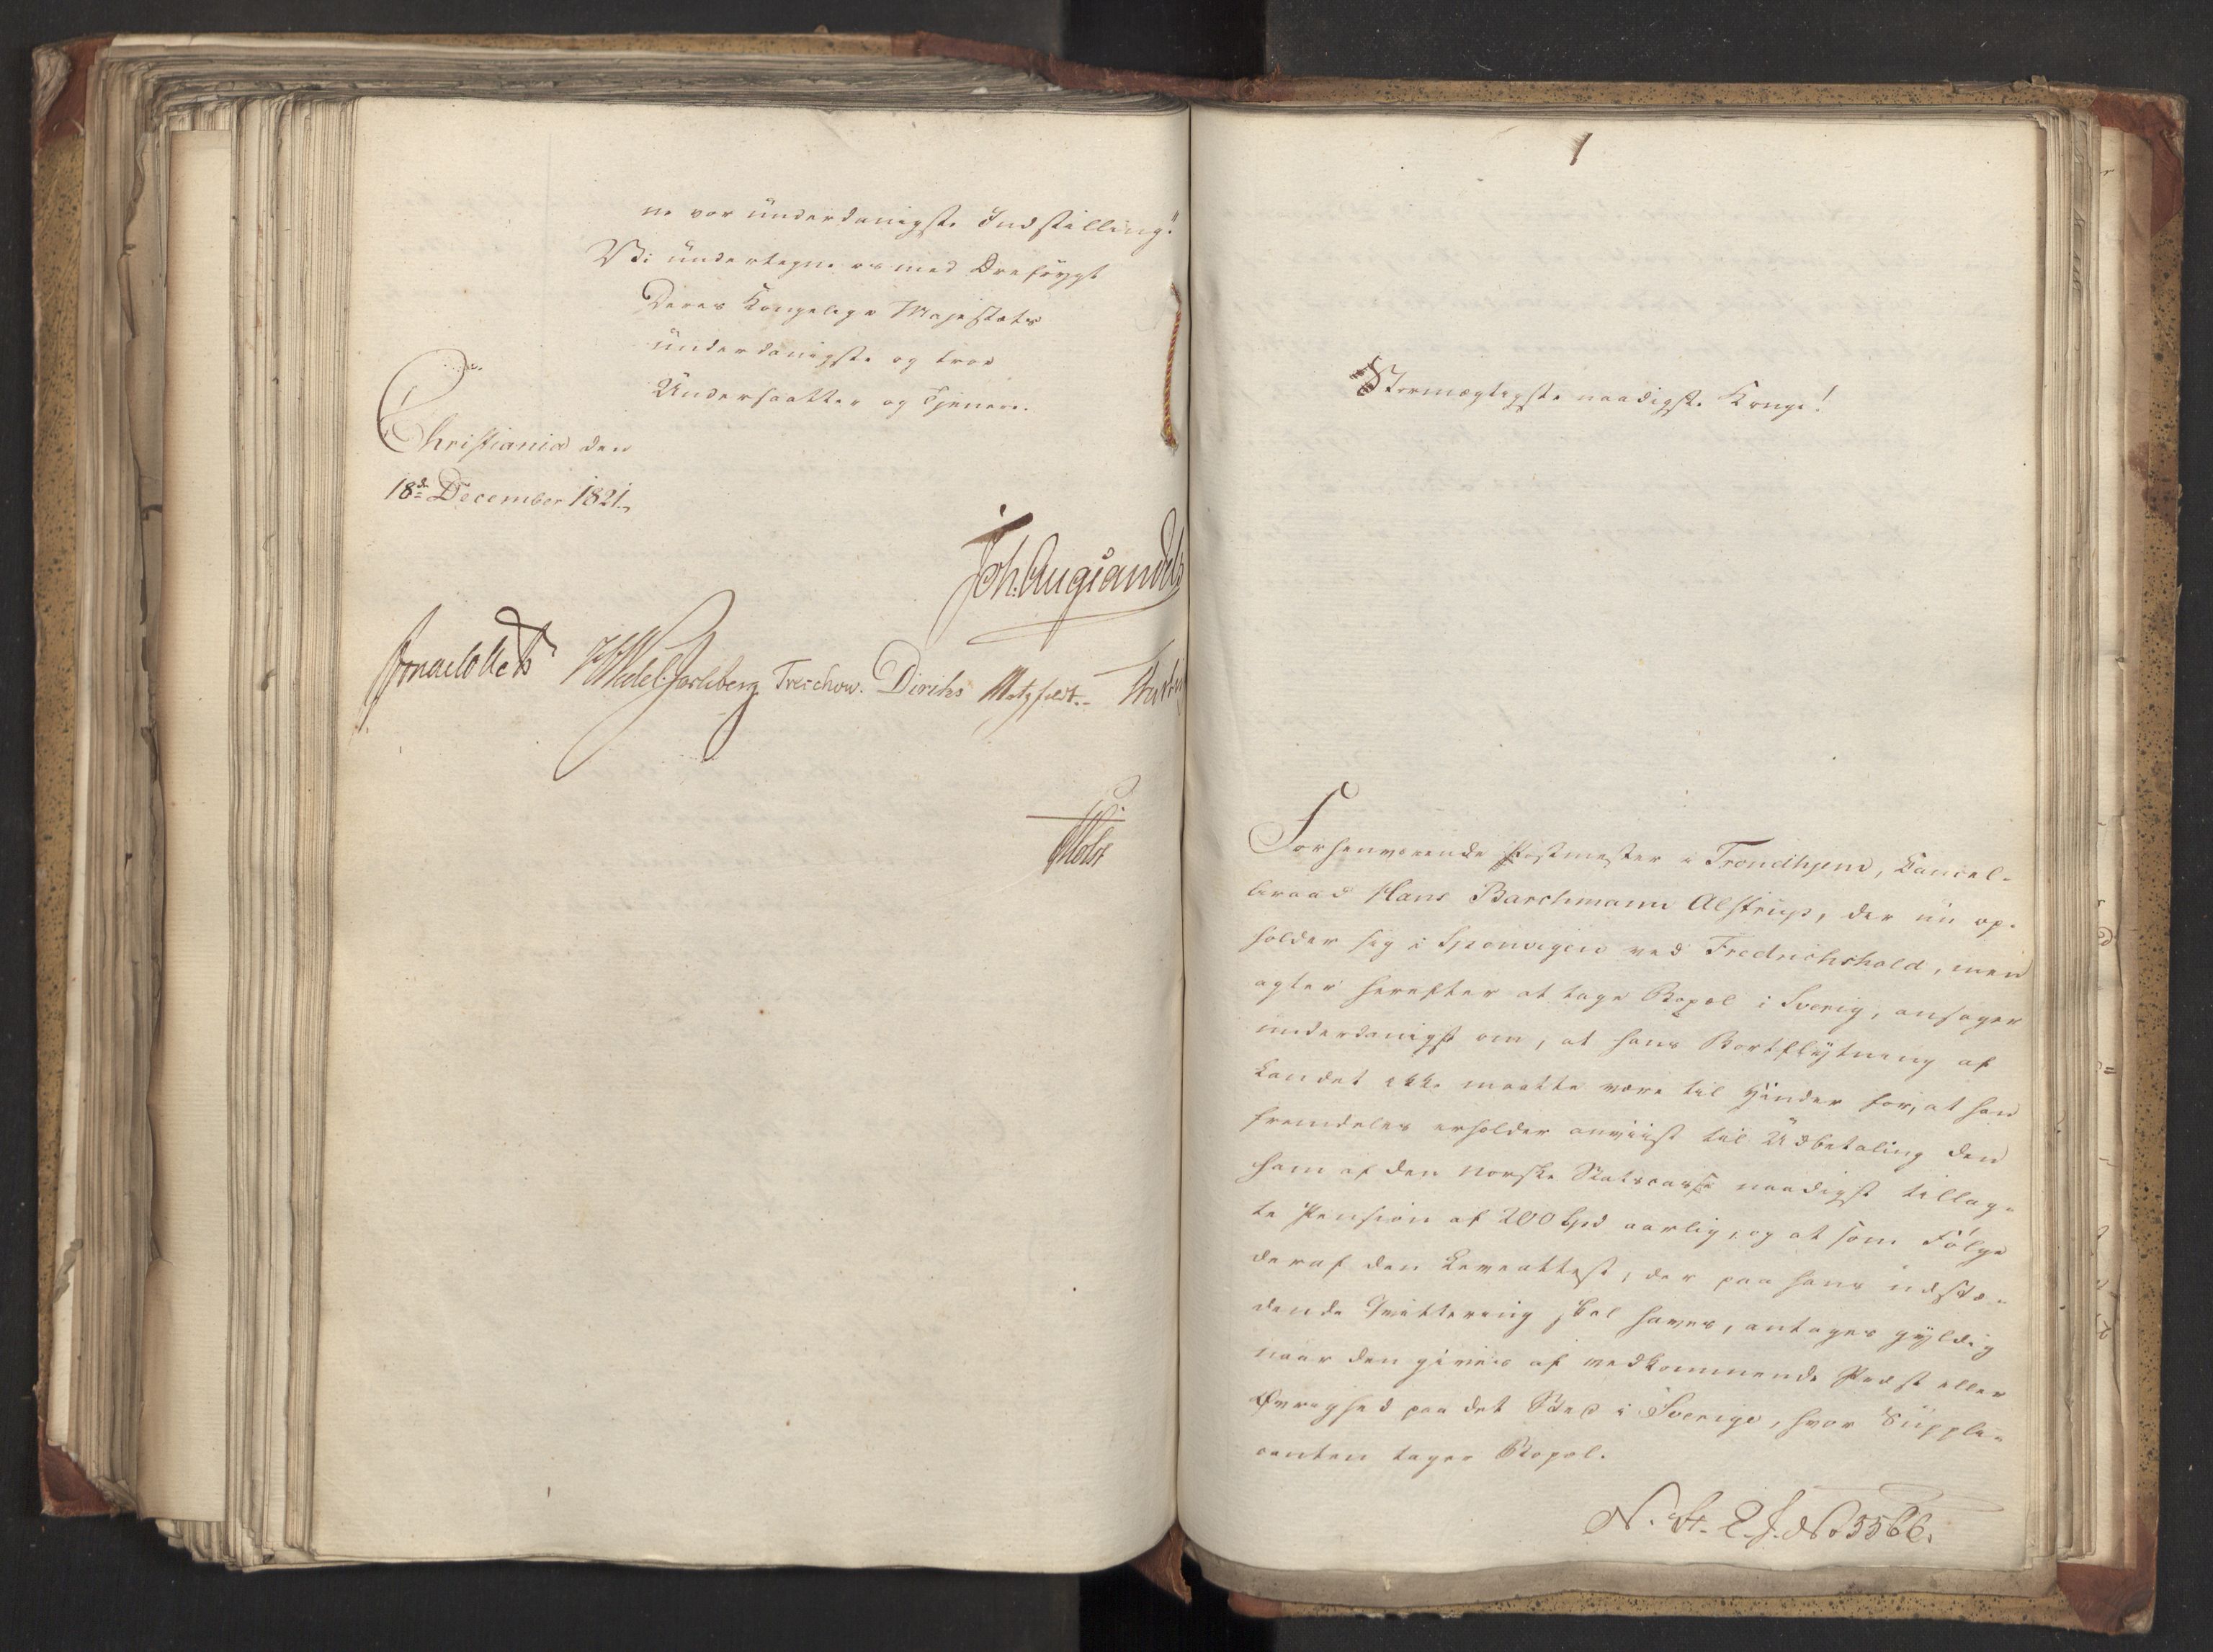 ne vor underdanigste Indstilling."
Vi undertegne os med Ærefrygt
Deres Kongelige Majestæts
underdanigste og troe
Undersaatter og Tjenere.
Christiania den
18de December 1821.
Joh. Aug. Sandels
Jonas Collett HWedel Jarlsberg Treschow. Diriks Motzfeldt.
Holst
1
Stormægtigste naadigste Konge!
Forhenværende Postmester i Trondhjem, Cancel-
liraad Hans Barchmann Alstrup, der nu op-
holder sig i Sponvigen ved Fredrichshald, men
agter herefter at tage Bopæl i Sverig, ansøger
underdanigst om, at hans Bortflytning af
Landet ikke maatte være til Hinder for, at han
fremdeles erholder anviist til Udbetaling den
ham af den norske Statscasse naadigst tillag-
te Pension af 200 Spd aarlig, og at som Følge
deraf den Leveattest, der paa hans udstæ-
dende Qvittering skal haves, antages gyldig
naar den gives af vedkommende Præst eller
Øvrighed paa det Sted i Sverige, hvor Suppli-
canten tager Bopæl.
N. St. R. J. No 5566.